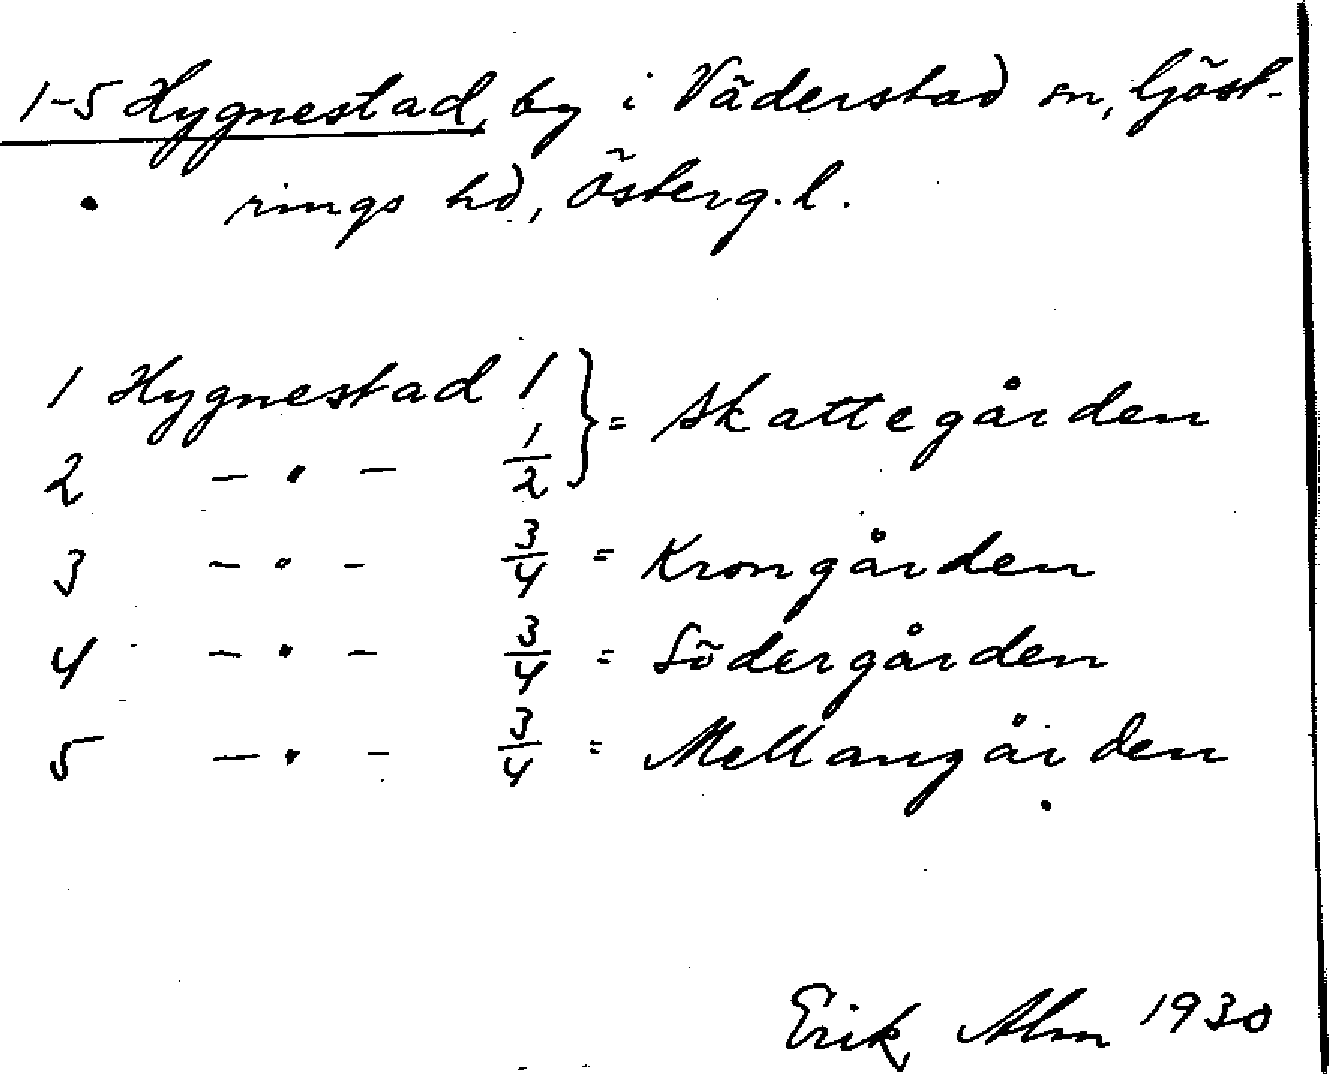 1-5 Hygnestad, by i Väderstad sn, Göst-
rings hd, Österg.l.
1 Hygnestad 1 } = Skattegården
2 - " - 1/2
3 - " - 3/4 = Krongården
4 - " - 3/4 = Södergården
5 - " - 3/4 = Mellangården
Erik Alm 1930